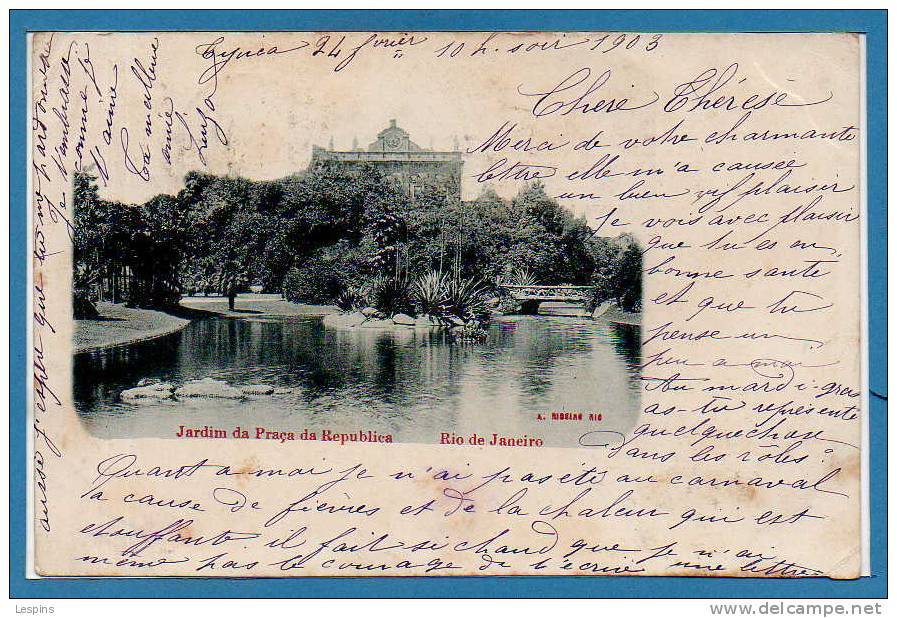 Tyuca 24 février 10 h. soir 1903
Cheré Thérésè
Merci de votre charmante
lettre elle m'a causée
un bien vif plaisir
Je vois avec plaisir
que tu es en
bonne santé
et que tu
pense un
peu a moi
Au mardi-gras
as-tu représenté
quelquechose
dans les rôles?
Quant a moi je n'ai pas été au carnaval
a cause de fièvres et de la chaleur qui est
étouffante il fait si chaud que je n'ai
même pas le courage de t'écrire une lettre
aussi j'espère que tu me pardonnes
Je t'embrasse
comme je
t'aime
Ta meilleure
amie
A. RIBEIRO RIO
Jardim da Praça da Republica Rio de Janeiro
Lespins
www.delcampe.net